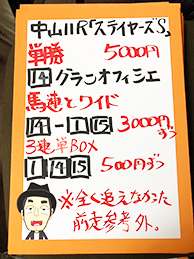 中山11R「ステイヤーズS」
単勝 5000円
14グランオフィシエ
馬連とワイド
14-1 15 3000円ずつ
3連単BOX
1 14 15 500円ずつ
※全く追えなかった
前走参考外。